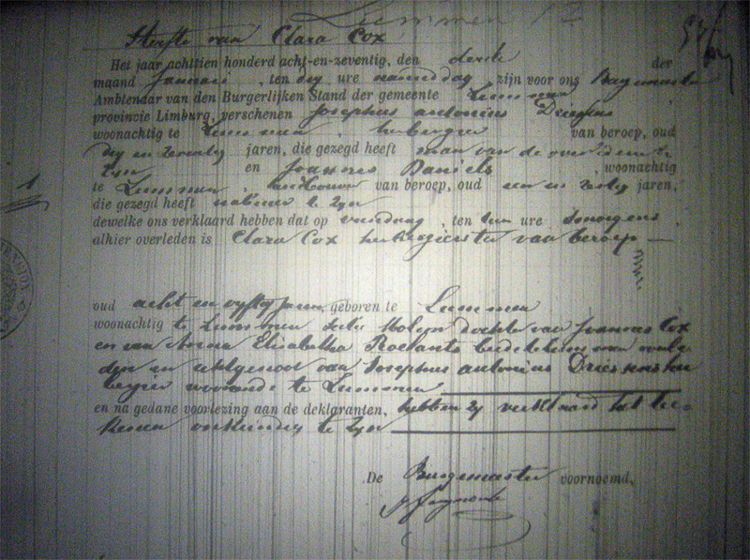 Lummen
Sterfte van Clara Cox
Het jaar achttien honderd acht-en-zeventig, den derde der
maand Januari, ten dry ure namiddag zijn voor ons Burgemeester
Ambtenaar van den Burgerlijken Stand der gemeente Lummen
provincie Limburg, verschenen Josephus antonius Driesens
woonachtig te Lummen, herbergier van beroep, oud
dry en zeventig jaren, die gezegd heeft man van de overledene te
zyn en Joannes Daniels, woonachtig
te Lummen, landbouwer van beroep, oud een en zestig jaren,
die gezegd heeft nabuer te zyn
dewelke ons verklaard hebben dat op vandaag, ten een ure smorgens
alhier overleden is Clara Cox herbergierster van beroep
oud acht en vyftig jaren, geboren te Lummen
woonachtig te Lummen dochter van Cox
en van Anna Elisabetha Roelants beide
en echtgenoot van Josephus antonius Driesens
woonende te Lummen
en na gedane voorlezing aan de deklaranten, hebben zy verklaard
onkundig te zyn
De Burgemeester voornoemd,